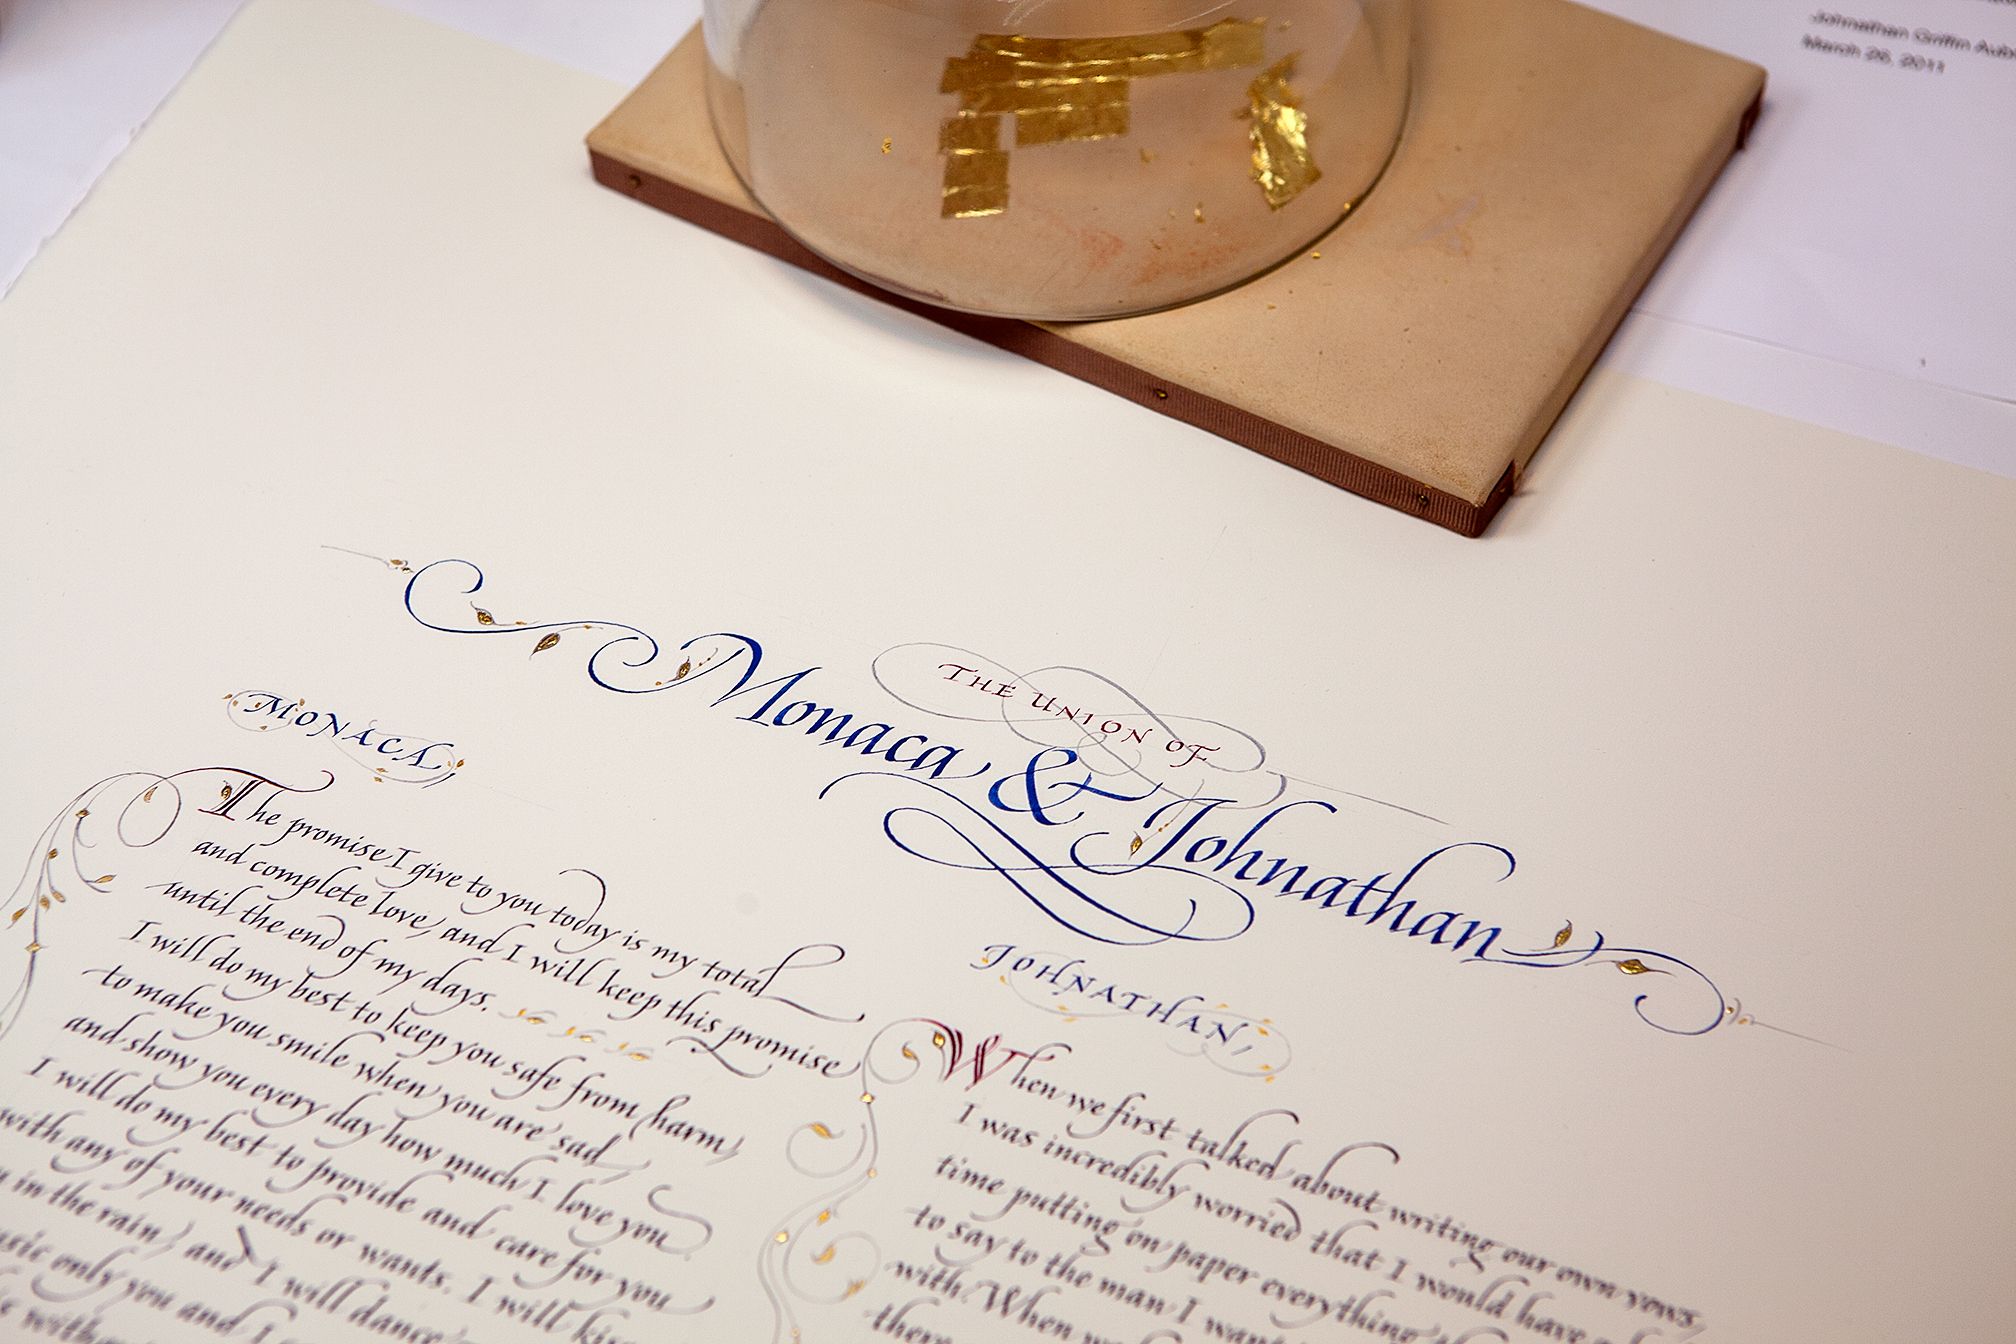 Johnathan Griffin
March 26, 2011
THE UNION OF
Monaca & Johnathan
MONACA,
The promise I give to you today is my total
and complete love, and I will keep this promise
until the end of my days.
I will do my best to keep you safe from harm,
to make you smile when you are sad,
and show you every day how much I love you
I will do my best to provide and care for you
with any of your needs or wants. I will kiss
in the rain, and I will dance
only you and I
JOHNATHAN,
When we first talked about writing our own vows,
I was incredibly worried that I would have a
time putting on paper everything
to say to the man I want
with. When we
there